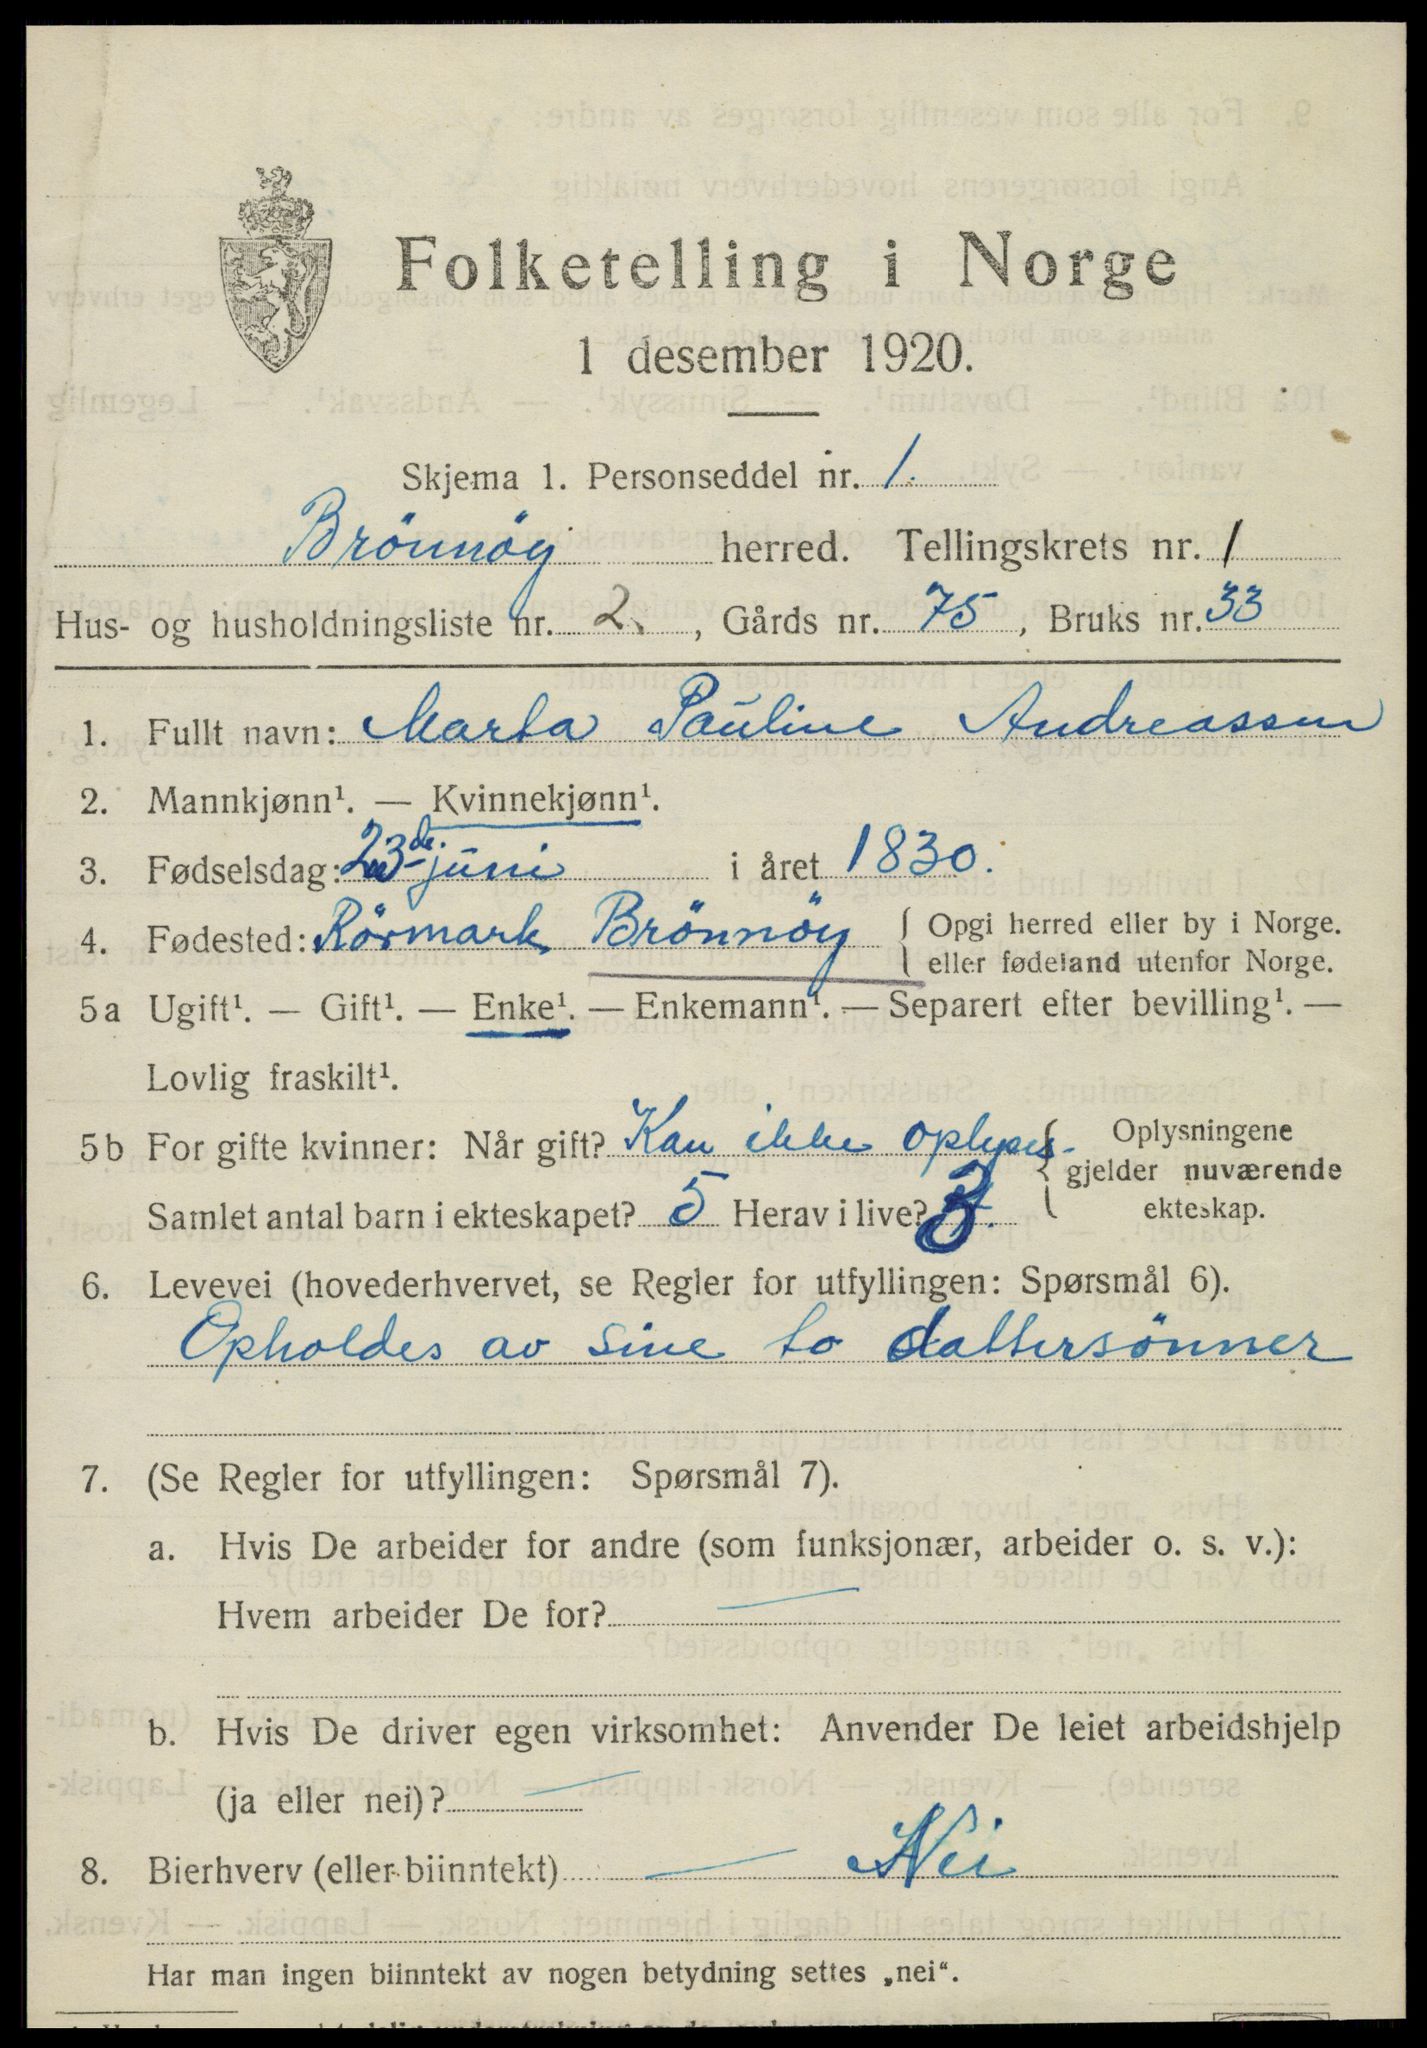 Folketelling i Norge
1 desember 1920.
Skjema 1. Personseddel nr. 1.
Brönnöy herred. Tellingskrets nr. 1
Hus- og husholdningsliste nr. 2. , Gårds nr. 75 , Bruks nr. 33
1. Fullt navn: Marta Pauline Andreassen
2. Mannkjønn¹. — Kvinnekjønn¹.
3. Fødselsdag: 23de juni i året 1830.
4. Fødested: Rörmark, Brönnöy { Opgi herred eller by i Norge.
eller fødeland utenfor Norge.
5a Ugift¹. — Gift¹. — Enke¹. — Enkemann¹. — Separert efter bevilling¹. —
Lovlig fraskilt¹.
5b For gifte kvinner: Når gift? Kan ikke oplyses. { Oplysningene
gjelder nuværende
ekteskap.
Samlet antal barn i ekteskapet? 5 Herav i live? 3.
6. Levevei (hovederhvervet, se Regler for utfyllingen: Spørsmål 6).
Opholdes av sine to dattersönner
7. (Se Regler for utfyllingen: Spørsmål 7).
a. Hvis De arbeider for andre (som funksjonær, arbeider o. s. v.):
Hvem arbeider De for? —
b. Hvis De driver egen virksomhet: Anvender De leiet arbeidshjelp
(ja eller nei)? —
8. Bierhverv (eller biinntekt) — Nei
Har man ingen biinntekt av nogen betydning settes „nei“.